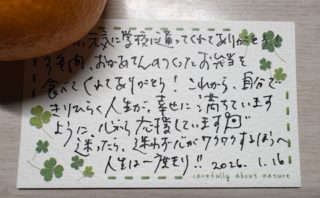 元気に学校に通ってくれてありがとう
3年間、おかあさんのつくったお弁当を
食べてくれてありがとう! これから、自分で
きりひらく人生が、幸せに満ちています
ように、心から応援しています
迷ったら、迷わず心がワクワクするほうへ
人生は一度きり!! 2026.1.16
carefully about nature